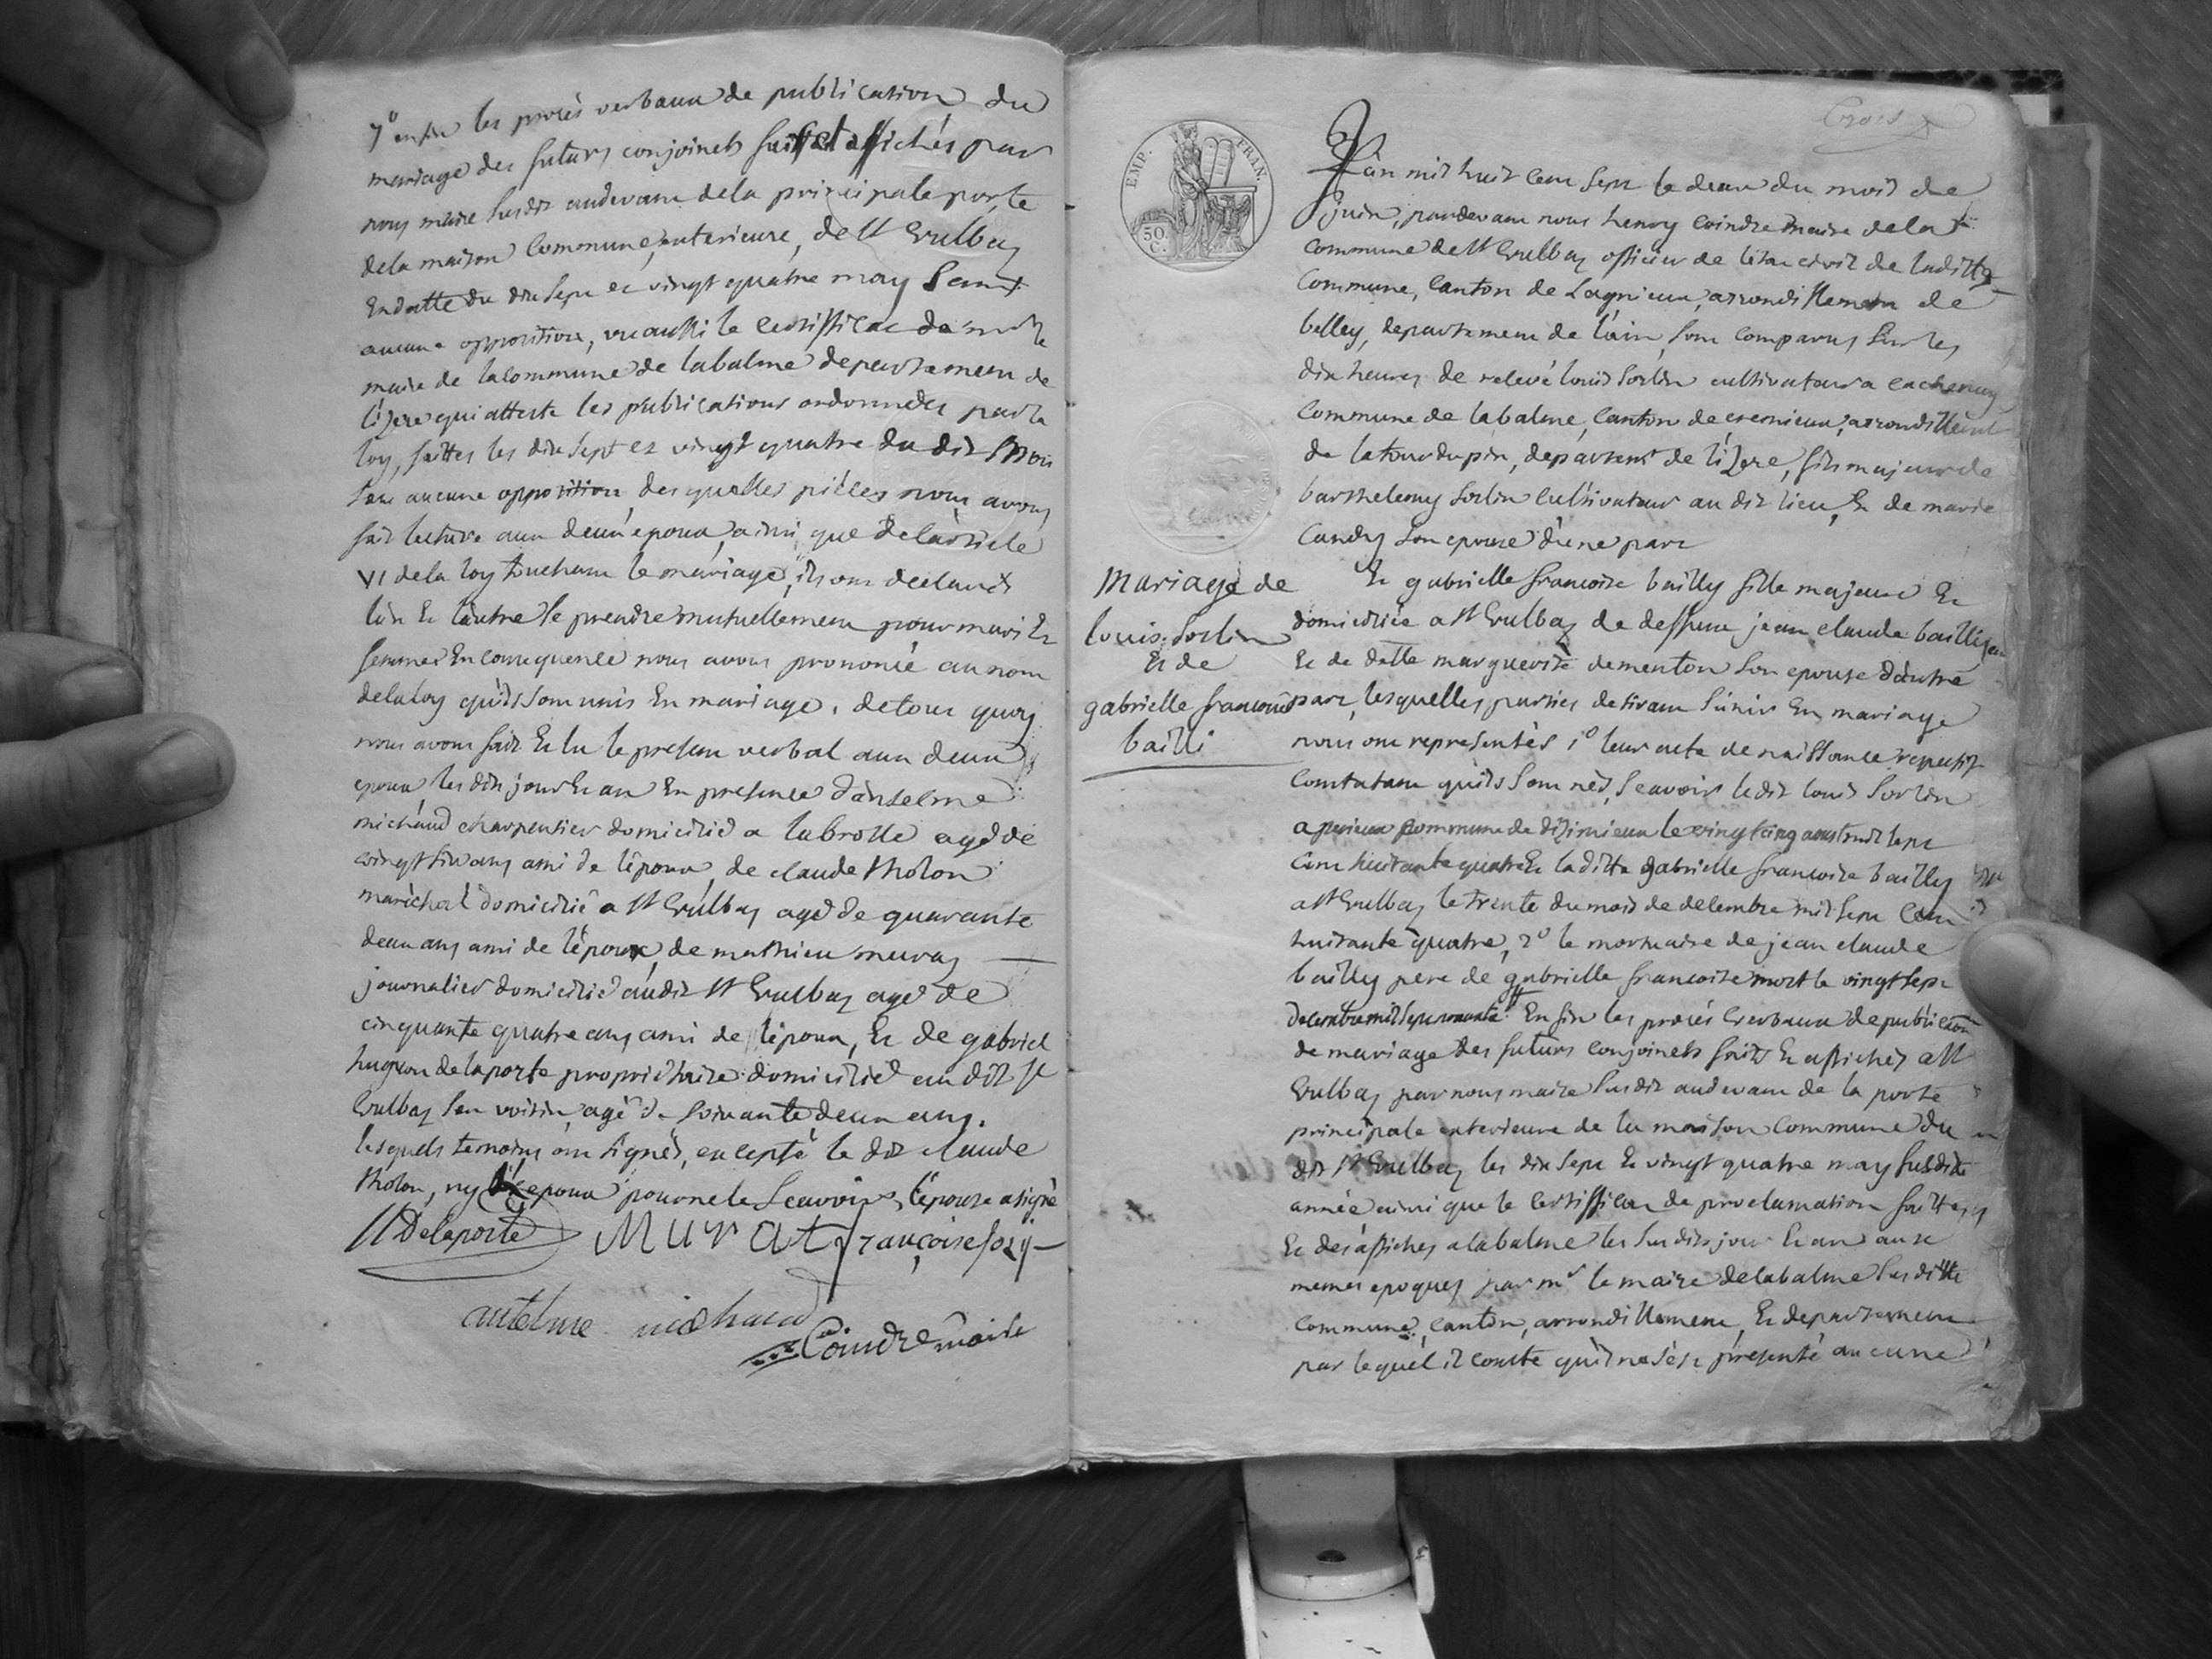 7° enfin les procès verbaux de publication du
mariage des futurs conjoincts faits et affichés par
nous maire susdit audevant dela principale porte
dela maison commune, exterieure, de St Vulbaz
En datte du dix sept et vingt quatre may sans
aucune opposition, vu aussi le certifficat de mr le
maire de la Commune de labalme departement de
l'izere qui atteste les publications ordonnées par la
loy, faittes les dix sept et vingt quatre du dit mois
sans aucune opposition, desquelles pièces nous avons
fait lecture aux deux époux, ainsi que de l'article
VI de la loy touchant le mariage, ils ont declaré
l'un et l'autre se prendre mutuellement pour mari et
femme En consequence nous avons prononcé au nom
dela loy qu'ils sont unis En mariage. de tout quoy
nous avons fait Et lu le present verbal aux deux
epoux, les dits jour Et an En presence d'anselme
michaud charpentier domicilié a labrosse agé de
vingt six ans ami de l'époux, de claude tholon
maréchal domicilié a St Vulbaz agé de quarante
deux ans ami de l'époux, de mathieu muraz
journalier domicilié audit St Vulbaz agé de
cinquante quatre ans ami de l'époux, Et de gabriel
hugon delaporte proprietaire domicilié au dit St
Vulbaz leur voisin, agé de soixante deux ans.
lesquels temoins ont signés, excepté le dit claude
tholon, ny époux pour ne le Scavoir, l'épouse a signé
Delaporte Murat françoise
antelme michaud
Coindre maire
EMP. FRAN.
50 C.
L'an mil huit cent sept le deux du mois de
juin, pardevant nous henry Coindre maire dela
commune de St Vulbaz officier de l'état civil de laditte
Commune, Canton de Lagnieux, arrondissement de
belley, departement de l'ain, sont comparus sur les
dix heures de relevé louis Sorlin cultivateur a
Commune de labalme, Canton de cremieux, arrondissement
de la tour dupin, departement de l'izere, fils majeur de
barthelemy Sorlin Cultivateur au dit lieu, Et de marie
Candy son epouse d'une part
Et gabrielle francoise bailly fille majeure Et
domiciliée a St Vulbaz de deffunt jean claude bailli
Et de dette marguerite dementon son epouse d'autre
part, lesquelles parties desirant s'unir En mariage
nous ont representés 1° leur acte de naissance respectif
Constatant qu'ils sont nés, Scavoir ledit louis Sorlin
a commune de dizimieux le vingt cinq aoust mil sept
Cent huitante quatre Et la ditte gabrielle francoise bailly
a St Vulbaz le trente du mois de decembre mil sept Cent
huitante quatre, 2° le mortuaire de jean claude
bailly pere de gabrielle francoise mort le vingt sept
decembre mil sept nonante. En fin les procès Verbaux de publication
de mariage des futurs conjoincts faits Et affichés a St
Vulbaz par nous maire susdit audevant de la porte
principale exterieure de la maison commune du
dit St Vulbaz les dix sept Et vingt quatre may susdite
année ainsi que le certifficat de proclamation faittes
Et des affiches a labalme les susdits jour Et an aux
memes epoques par mr le maire de labalme susditte
commune, canton, arrondissement, Et departement
par lequel il conste qu'il ne s'est présenté aucune
Mariage de
louis Sorlin
Et de
gabrielle francoise
bailli